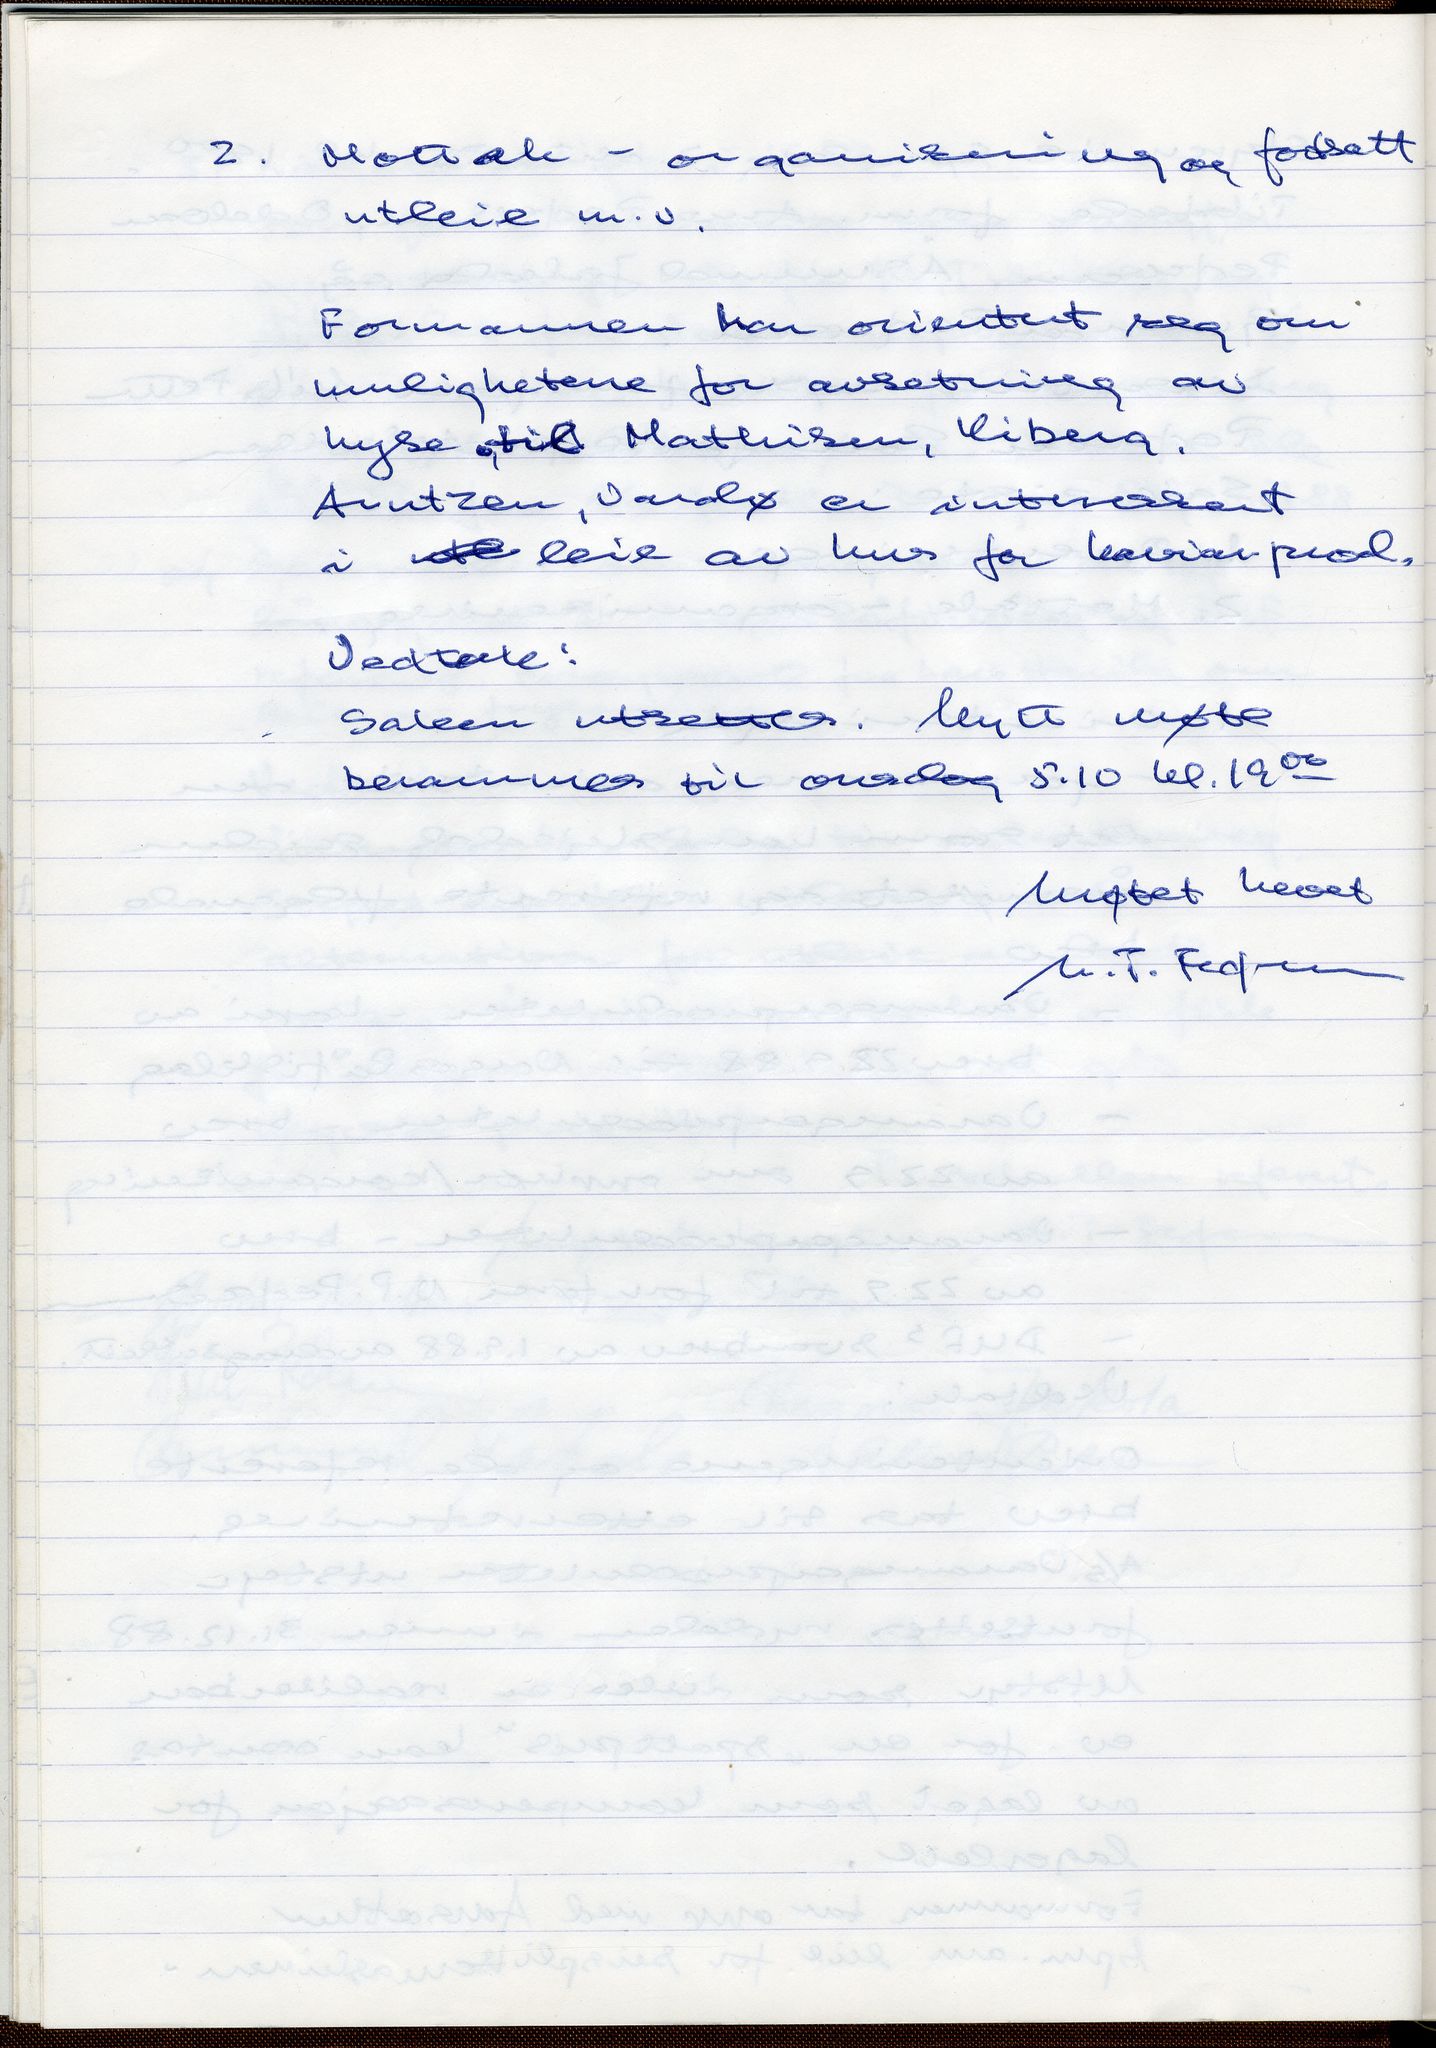 2. Mottak - organisering og fodsatt
utleie m.v.
Formannen har orientert seg om
mulighetene for avsetning av
hyse til Mathisen, Kiberg.
Arntzen, Vardø er interessert
i leie av hus for kaviarprod.
Vedtak:
Saken utsettes. Nytt møte
berammes til onsdag 5.10 kl. 19 00
Møtet hevet
N. T.